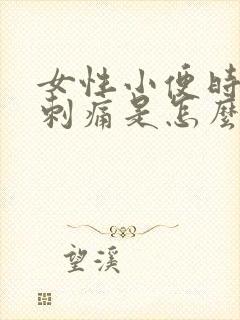 女性小便時
刺痛是怎麼
望溪